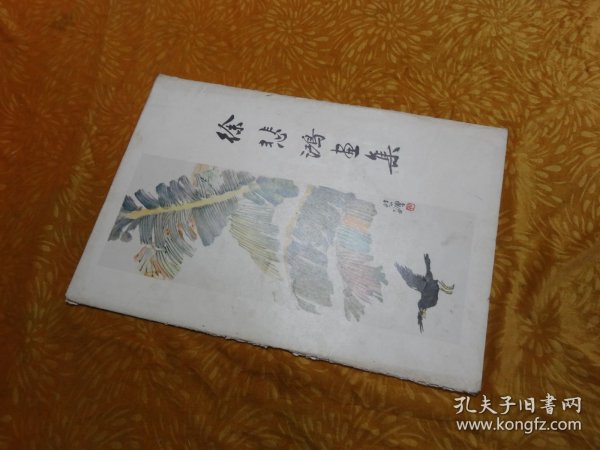 徐悲鸿画集
悲鸿
孔夫子旧書网
www.kongfz.com